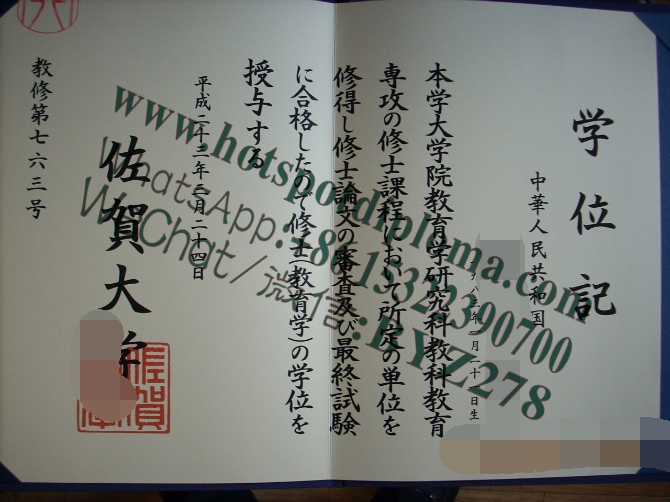 学位記
中華人民共和国
月二十
日生
本学大学院教育学研究科教科教育
専攻の修士課程において所定の単位を
修得し修士論文の審査及び最終試験
に合格したので修士(教育学)の学位を
授与する
平成二
年三月二十四日
佐賀大学
教修第七六三号
www.hotspotdiploma.com
WhatsApp:+86 13322390700
WeChat/微信:LYZ278